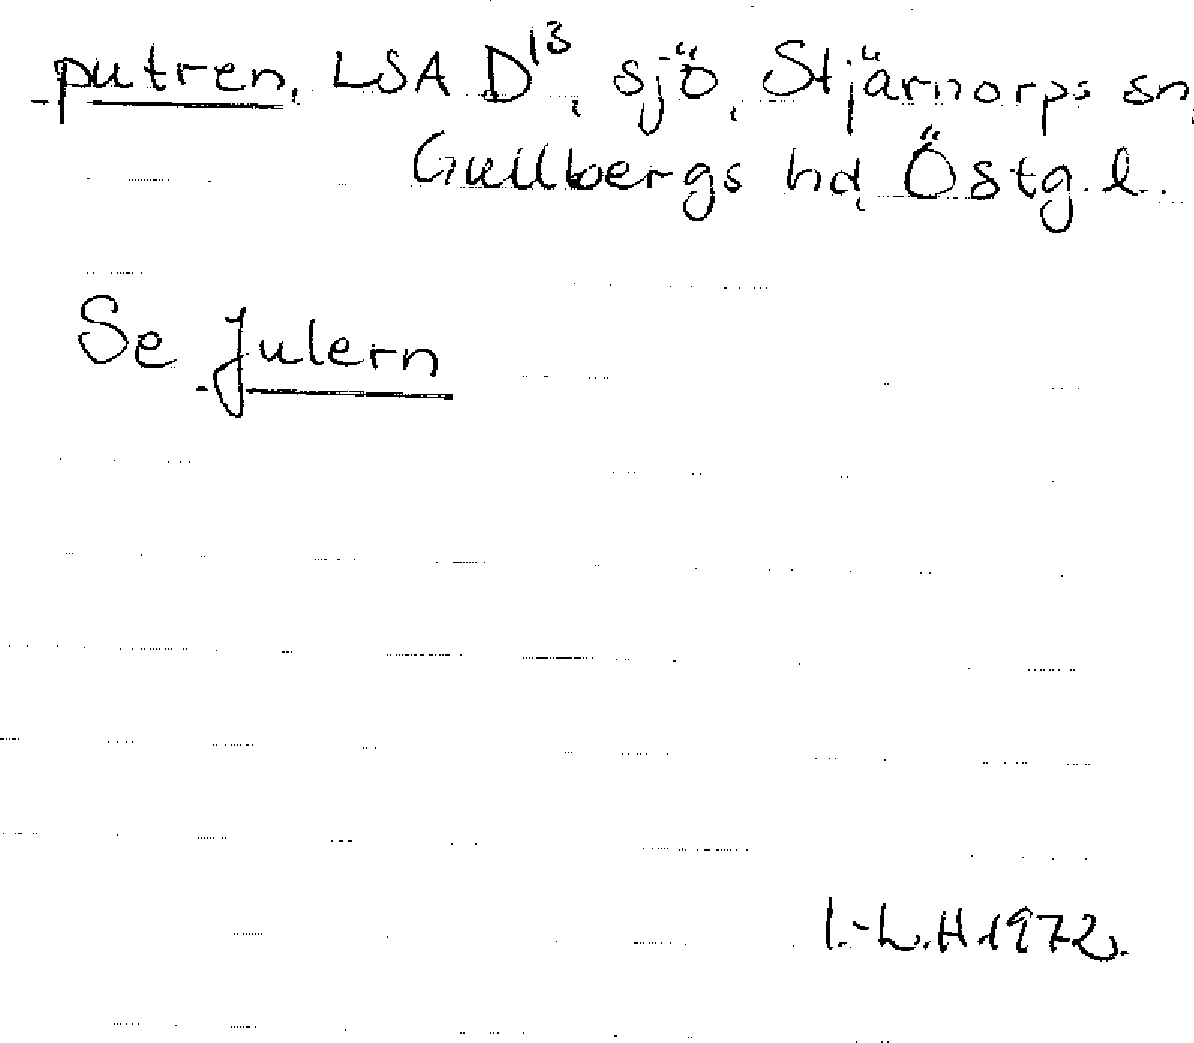 putren, LSA D¹³, sjö, Stjärnorps sn,
Gullbergs hd, Östg. l.
Se Julern
I.-L.H 1972.